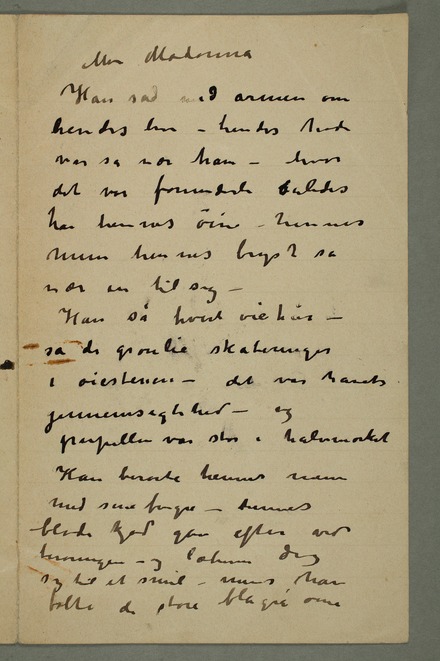 Min Madonna
Han sad med armen om
hendes liv – hendes hode
var så nær ham – hvor
det var forunderlig således
ha hennes öine – hennes
mun hennes bryst så
nær en til sig –
Han så hvert øiehår –
så de grønlie skateringer
i øiestenen – det var havets
jennemsigtihed – og
pupillen var stor i halvmørket
Han berørte hennes mun
med sine fingre – hennes
bløde kjød gav efter ved
berøringen – og læberne drog
sig til et smil – mens han
følte de store blågrå øine